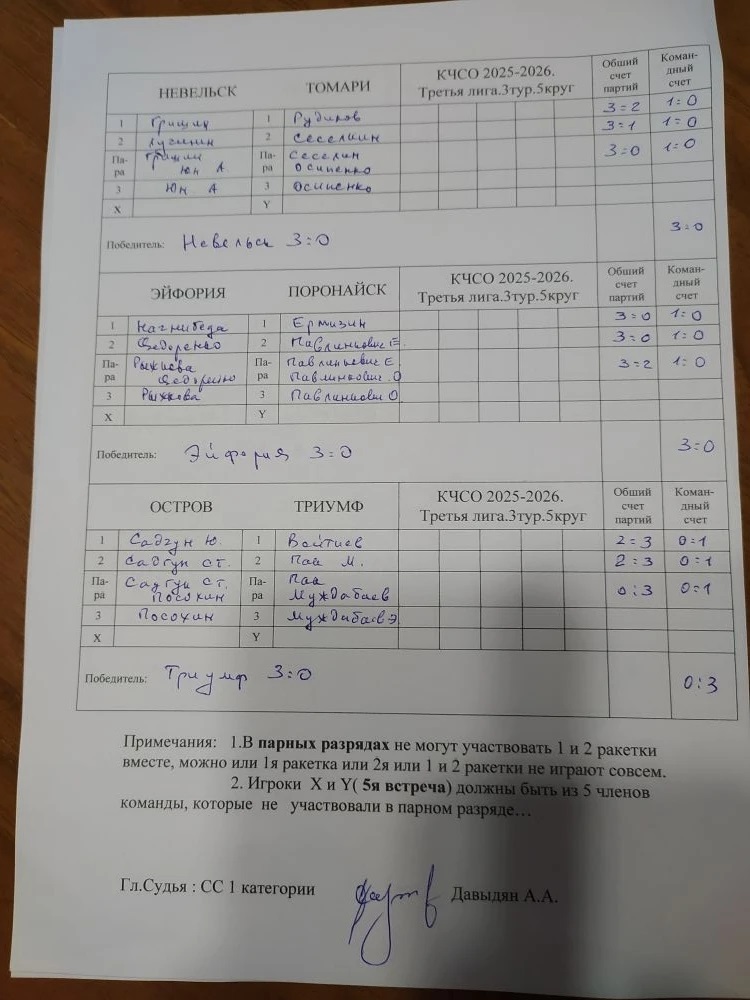 НЕВЕЛЬСК ТОМАРИ КЧСО 2025-2026. Третья лига.3тур.5круг Общий счет партий Коман-дный счет
1 Гришин 1 Рудиков 3=2 1=0
2 2 Сеселкин 3=1 1=0
Па-ра Гришин Юн А. Па-ра Сеселкин Осипенко 3=0 1=0
3 Юн А 3 Осипенко
X Y
Победитель: Невельск 3=0 3=0
ЭЙФОРИЯ ПОРОНАЙСК КЧСО 2025-2026. Третья лига.3тур.5круг Общий счет партий Коман-дный счет
1 Нагнибеда 1 Ермизин 3=0 1=0
2 Федоренко 2 Павлинкович Е 3=0 1=0
Па-ра Рыжкова Федоренко Па-ра Павлинкович Е. Павлинкович О 3=2 1=0
3 Рыжкова 3 Павлинкович О
X Y
Победитель: Эйфория 3=0 3=0
ОСТРОВ ТРИУМФ КЧСО 2025-2026. Третья лига.3тур.5круг Общий счет партий Коман-дный счет
1 Садгун Ю. 1 Войтиев 2=3 0=1
2 Садгун Ст. 2 Пак М. 2=3 0=1
Па-ра Садгун Ст. Посохин Па-ра Пак Муждабаев 0:3 0=1
3 Посохин 3 Муждабаев Э.
X Y
Победитель: Триумф 3=0 0:3
Примечания: 1.В парных разрядах не могут участвовать 1 и 2 ракетки
вместе, можно или 1я ракетка или 2я или 1 и 2 ракетки не играют совсем.
2. Игроки X и Y( 5я встреча) должны быть из 5 членов
команды, которые не участвовали в парном разряде…
Гл.Судья : СС 1 категории Давыдян А.А.